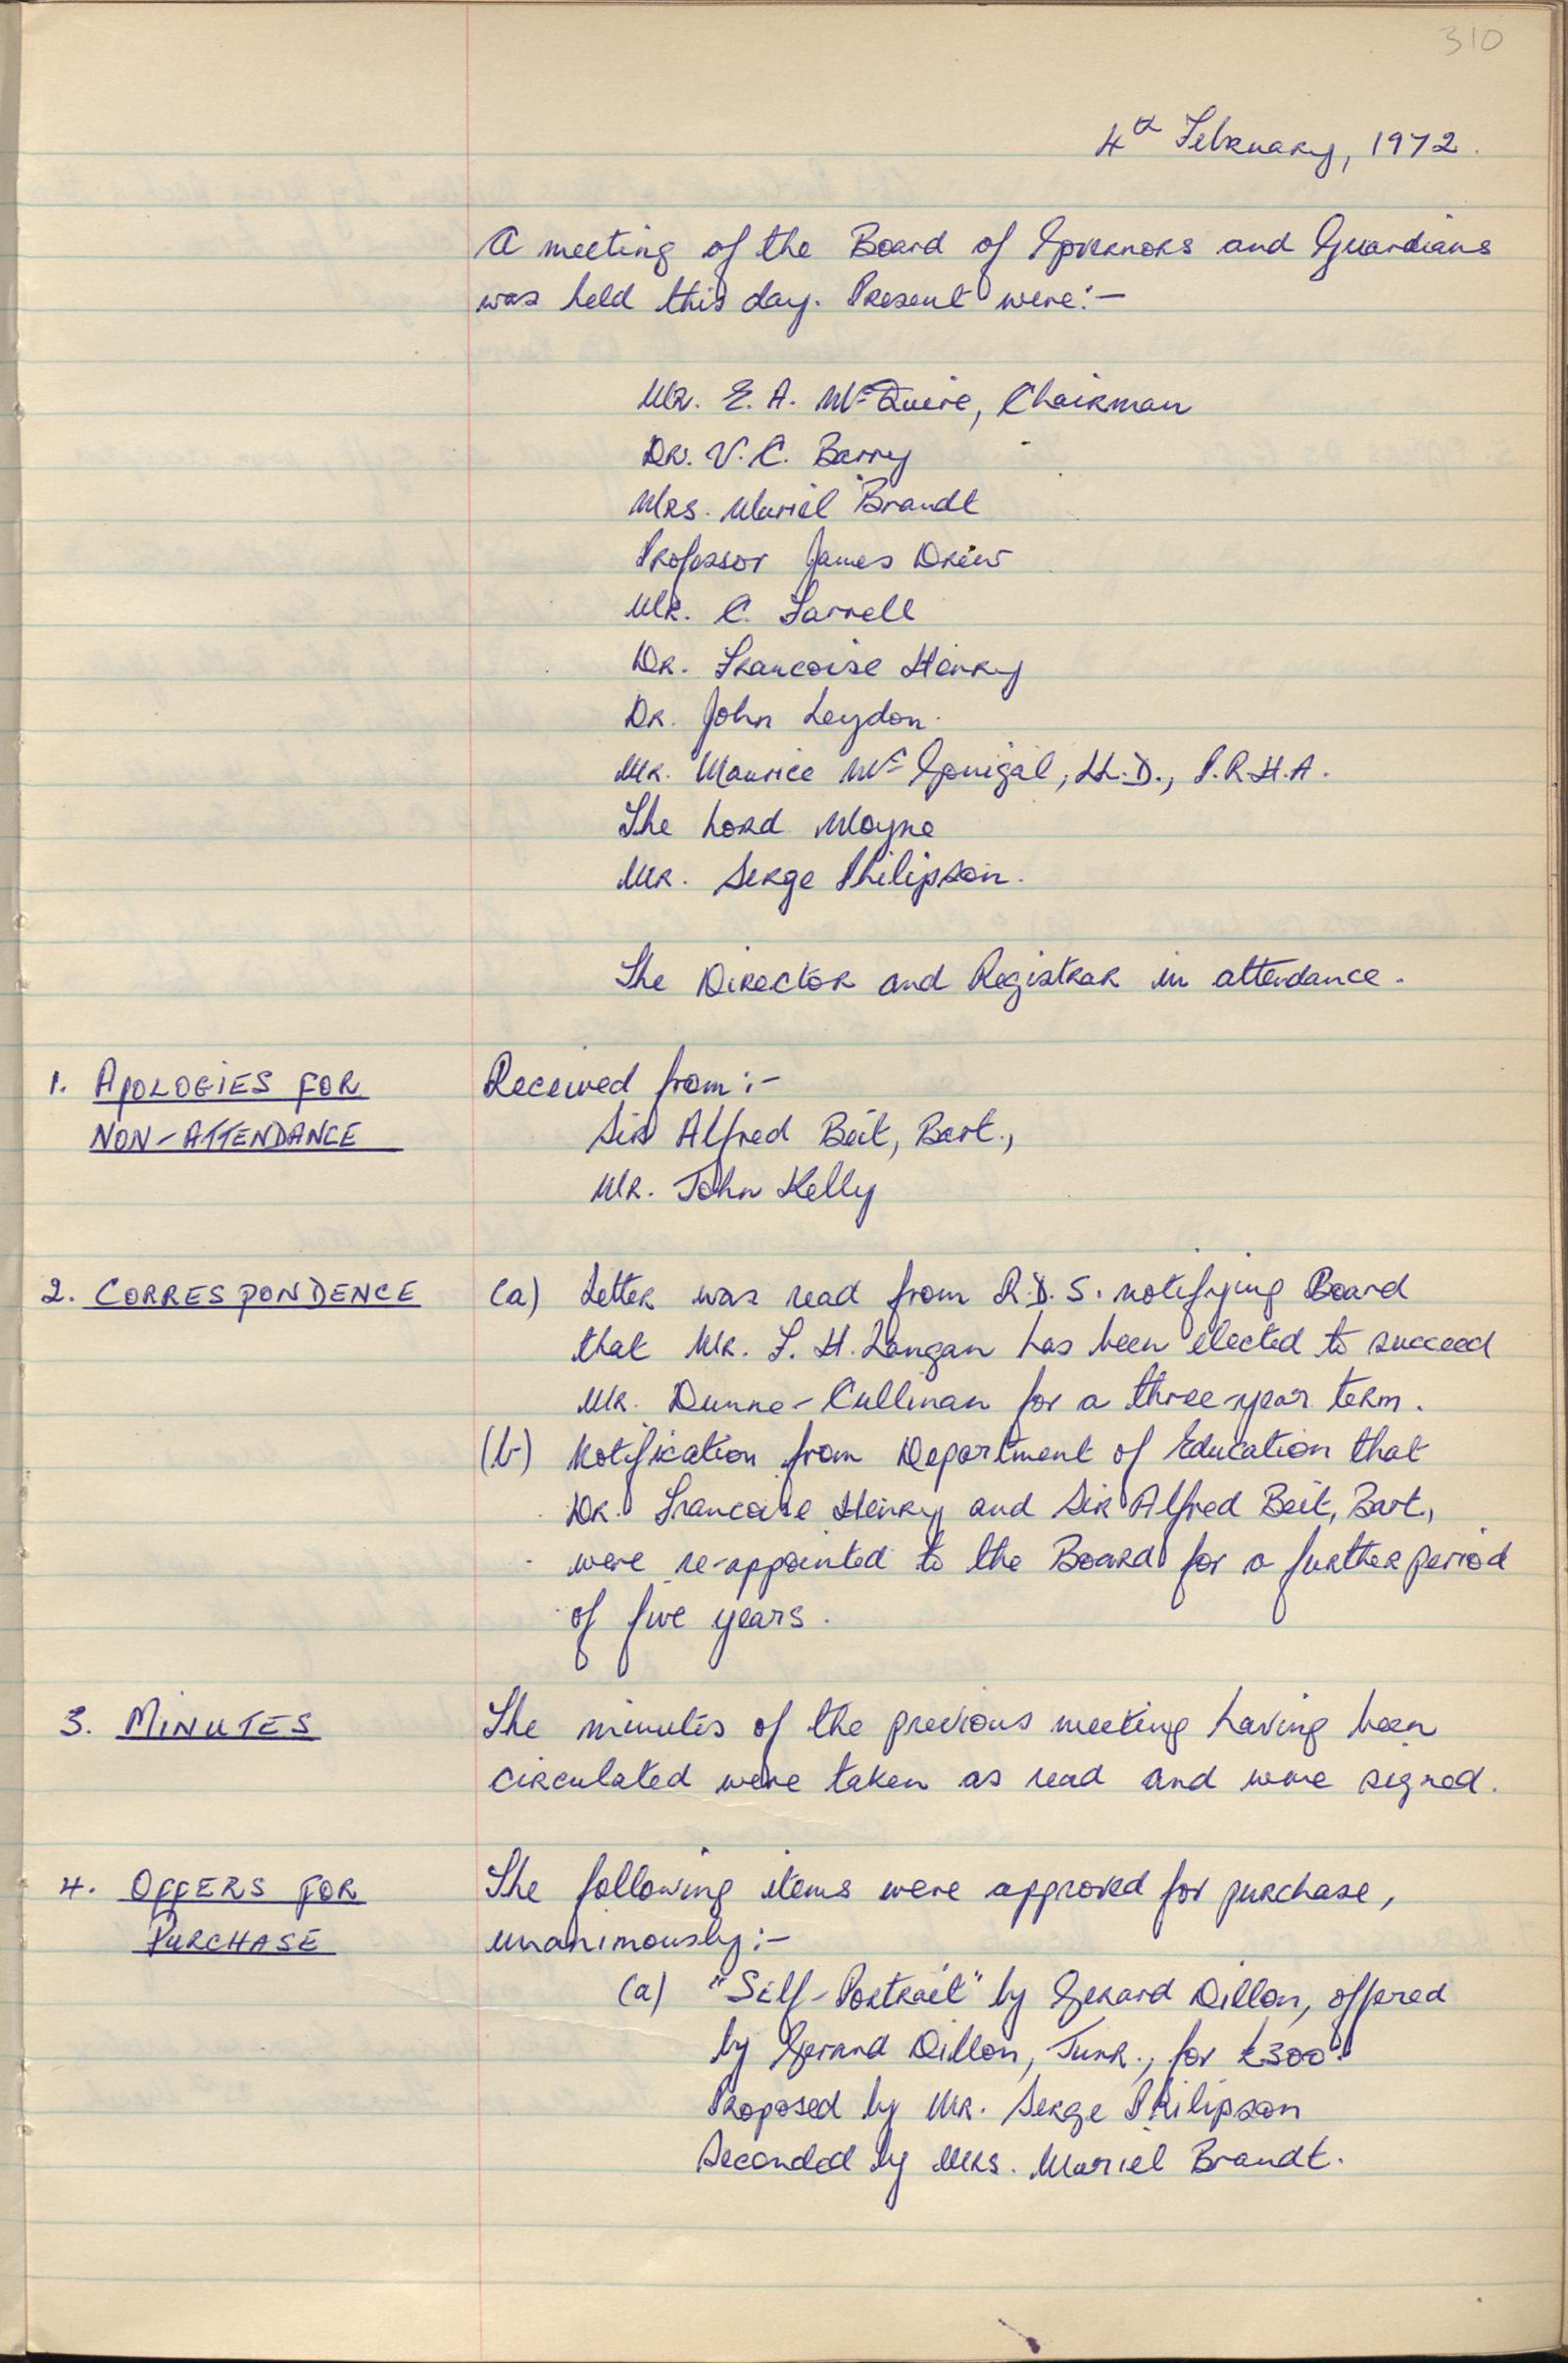 310
4th February, 1972.
A meeting of the Board of Governors and Guardians
was held this day. Present were:-
Mr. E. A. McGuire, Chairman
Dr. V. C. Barry
Mrs. Muriel Brandt
Professor James Drew
Mr. C. Farrell
Dr. Francoise Henry
Dr. John Leydon.
Mr. Maurice McGonigal, LL.D., P.R.H.A.
The Lord Moyne
Mr. Serge Philipson.
The Director and Registrar in attendance.
1. APOLOGIES FOR
NON-ATTENDANCE
Received from:-
Sir Alfred Beit, Bart.,
Mr. John Kelly
2. CORRESPONDENCE
(a) Letter was read from R.D.S. notifying Board
that Mr. F. H. Langan has been elected to succeed
Mr. Dunne-Cullinan for a three-year term.
(b) Notification from Department of Education that
Dr. Francoise Henry and Sir Alfred Beit, Bart.,
were re-appointed to the Board for a further period
of five years.
3. MINUTES
The minutes of the previous meeting having been
circulated were taken as read and were signed.
4. OFFERS FOR
PURCHASE
The following items were approved for purchase,
unanimously:-
(a) "Self-Portrait" by Gerard Dillon, offered
by Gerard Dillon, Junr., for £300.
Proposed by Mr. Serge Philipson
Seconded by Mrs. Muriel Brandt.